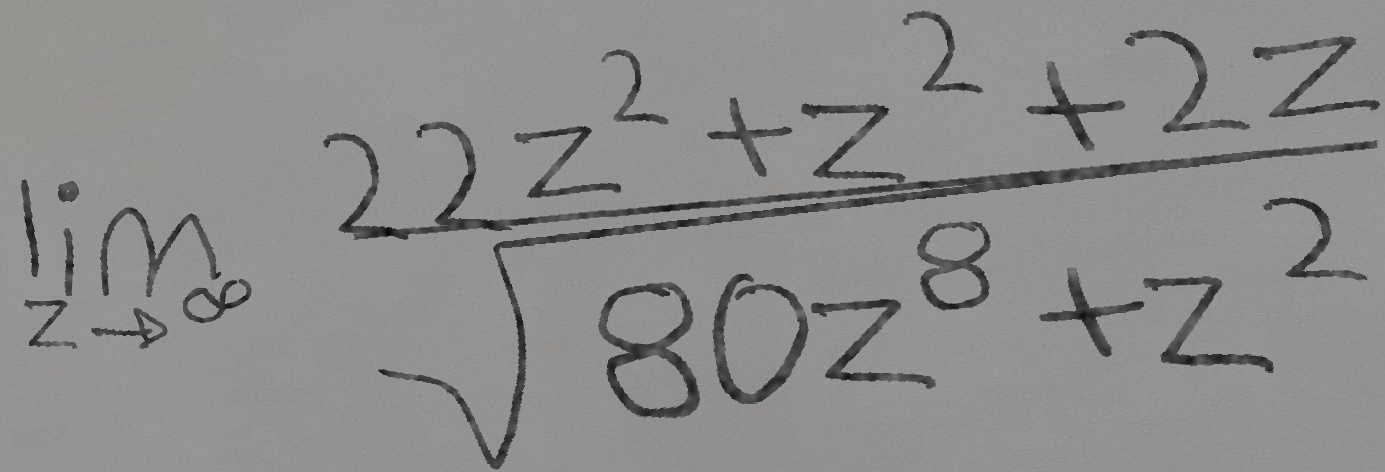 \lim_{z \to \infty} \frac{22z^2+z^2+2z}{\sqrt{80z^8+z^2}}